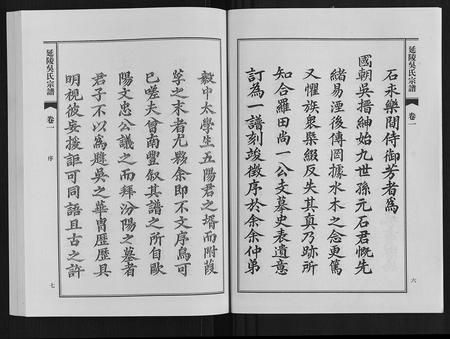 延陵吳氏宗譜
卷一
六
石永樂間侍御芳者為
國朝吳搢紳始九世孫元石君慨先
緒易湮後傳罔據水木之念更篤
又懼族衆槩綴反失其真乃跡所
知合羅田尚一公文墓史表遺意
訂為一譜刻竣徵序於余余仲弟
毅中太學生五陽君之壻而附葭
莩之末者尤夥余即不文序烏可
已嗟夫曾南豐敘其譜之所自歐
陽文忠公議之而拜汾陽之墓者
君子不以為趙吳之華胄歷歷具
明視彼妄援詎可同語且古之許
延陵吳氏宗譜
卷一
序
七